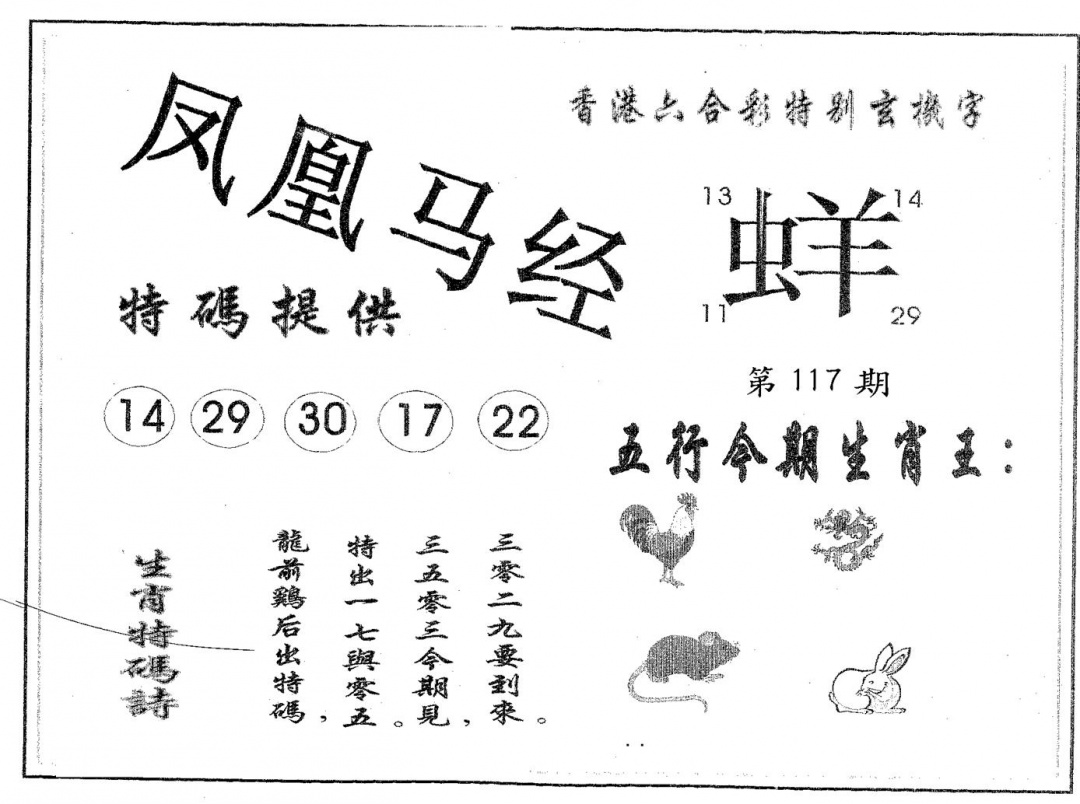 凤凰马经
香港六合彩特别玄機字
13 14
蛘
11 29
特碼提供
第 117 期
14 29 30 17 22
五行今期生肖王：
生肖特碼詩
龍前鷄后出特碼，
特出一七與零五。
三五零三今期見，
三零二九要到來。